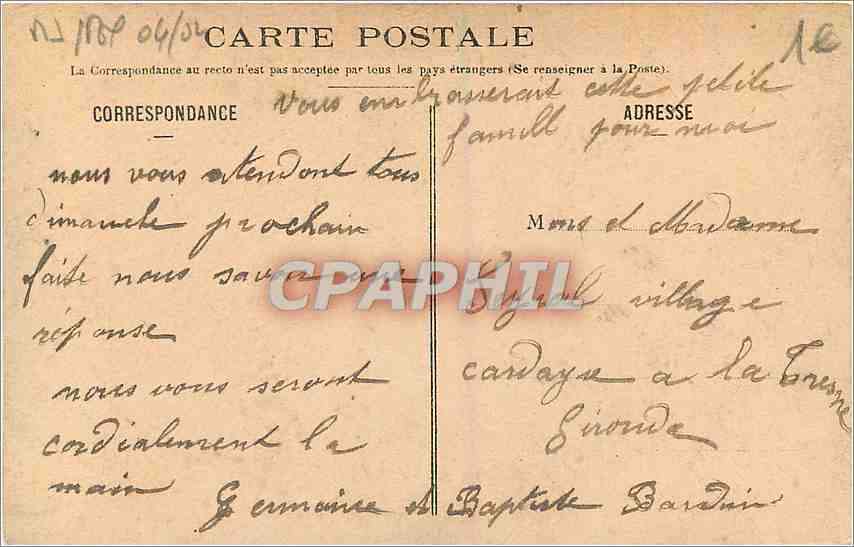 04/02
1€
CARTE POSTALE
La Correspondance au recto n'est pas acceptée par tous les pays étrangers (Se renseigner à la Poste).
CORRESPONDANCE
ADRESSE
vous embrasserait cette petite
famill pour moi
nous vous atendont tous
dimanche prochain
faite nous savoir une
réponse
nous vous seront
cordialement la
main
Germaine et Baptiste Bardin
Mons et Madame
village
a la Tresne
Gironde
CPAPHIL